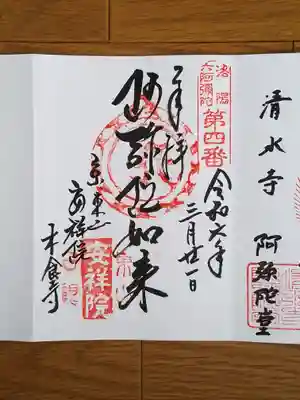 清水寺 阿弥陀堂
洛陽
六阿弥陀
第四番
奉拝
令和六年
三月廿一日
阿弥陀如来
京東山
安祥院
木食寺
安祥院